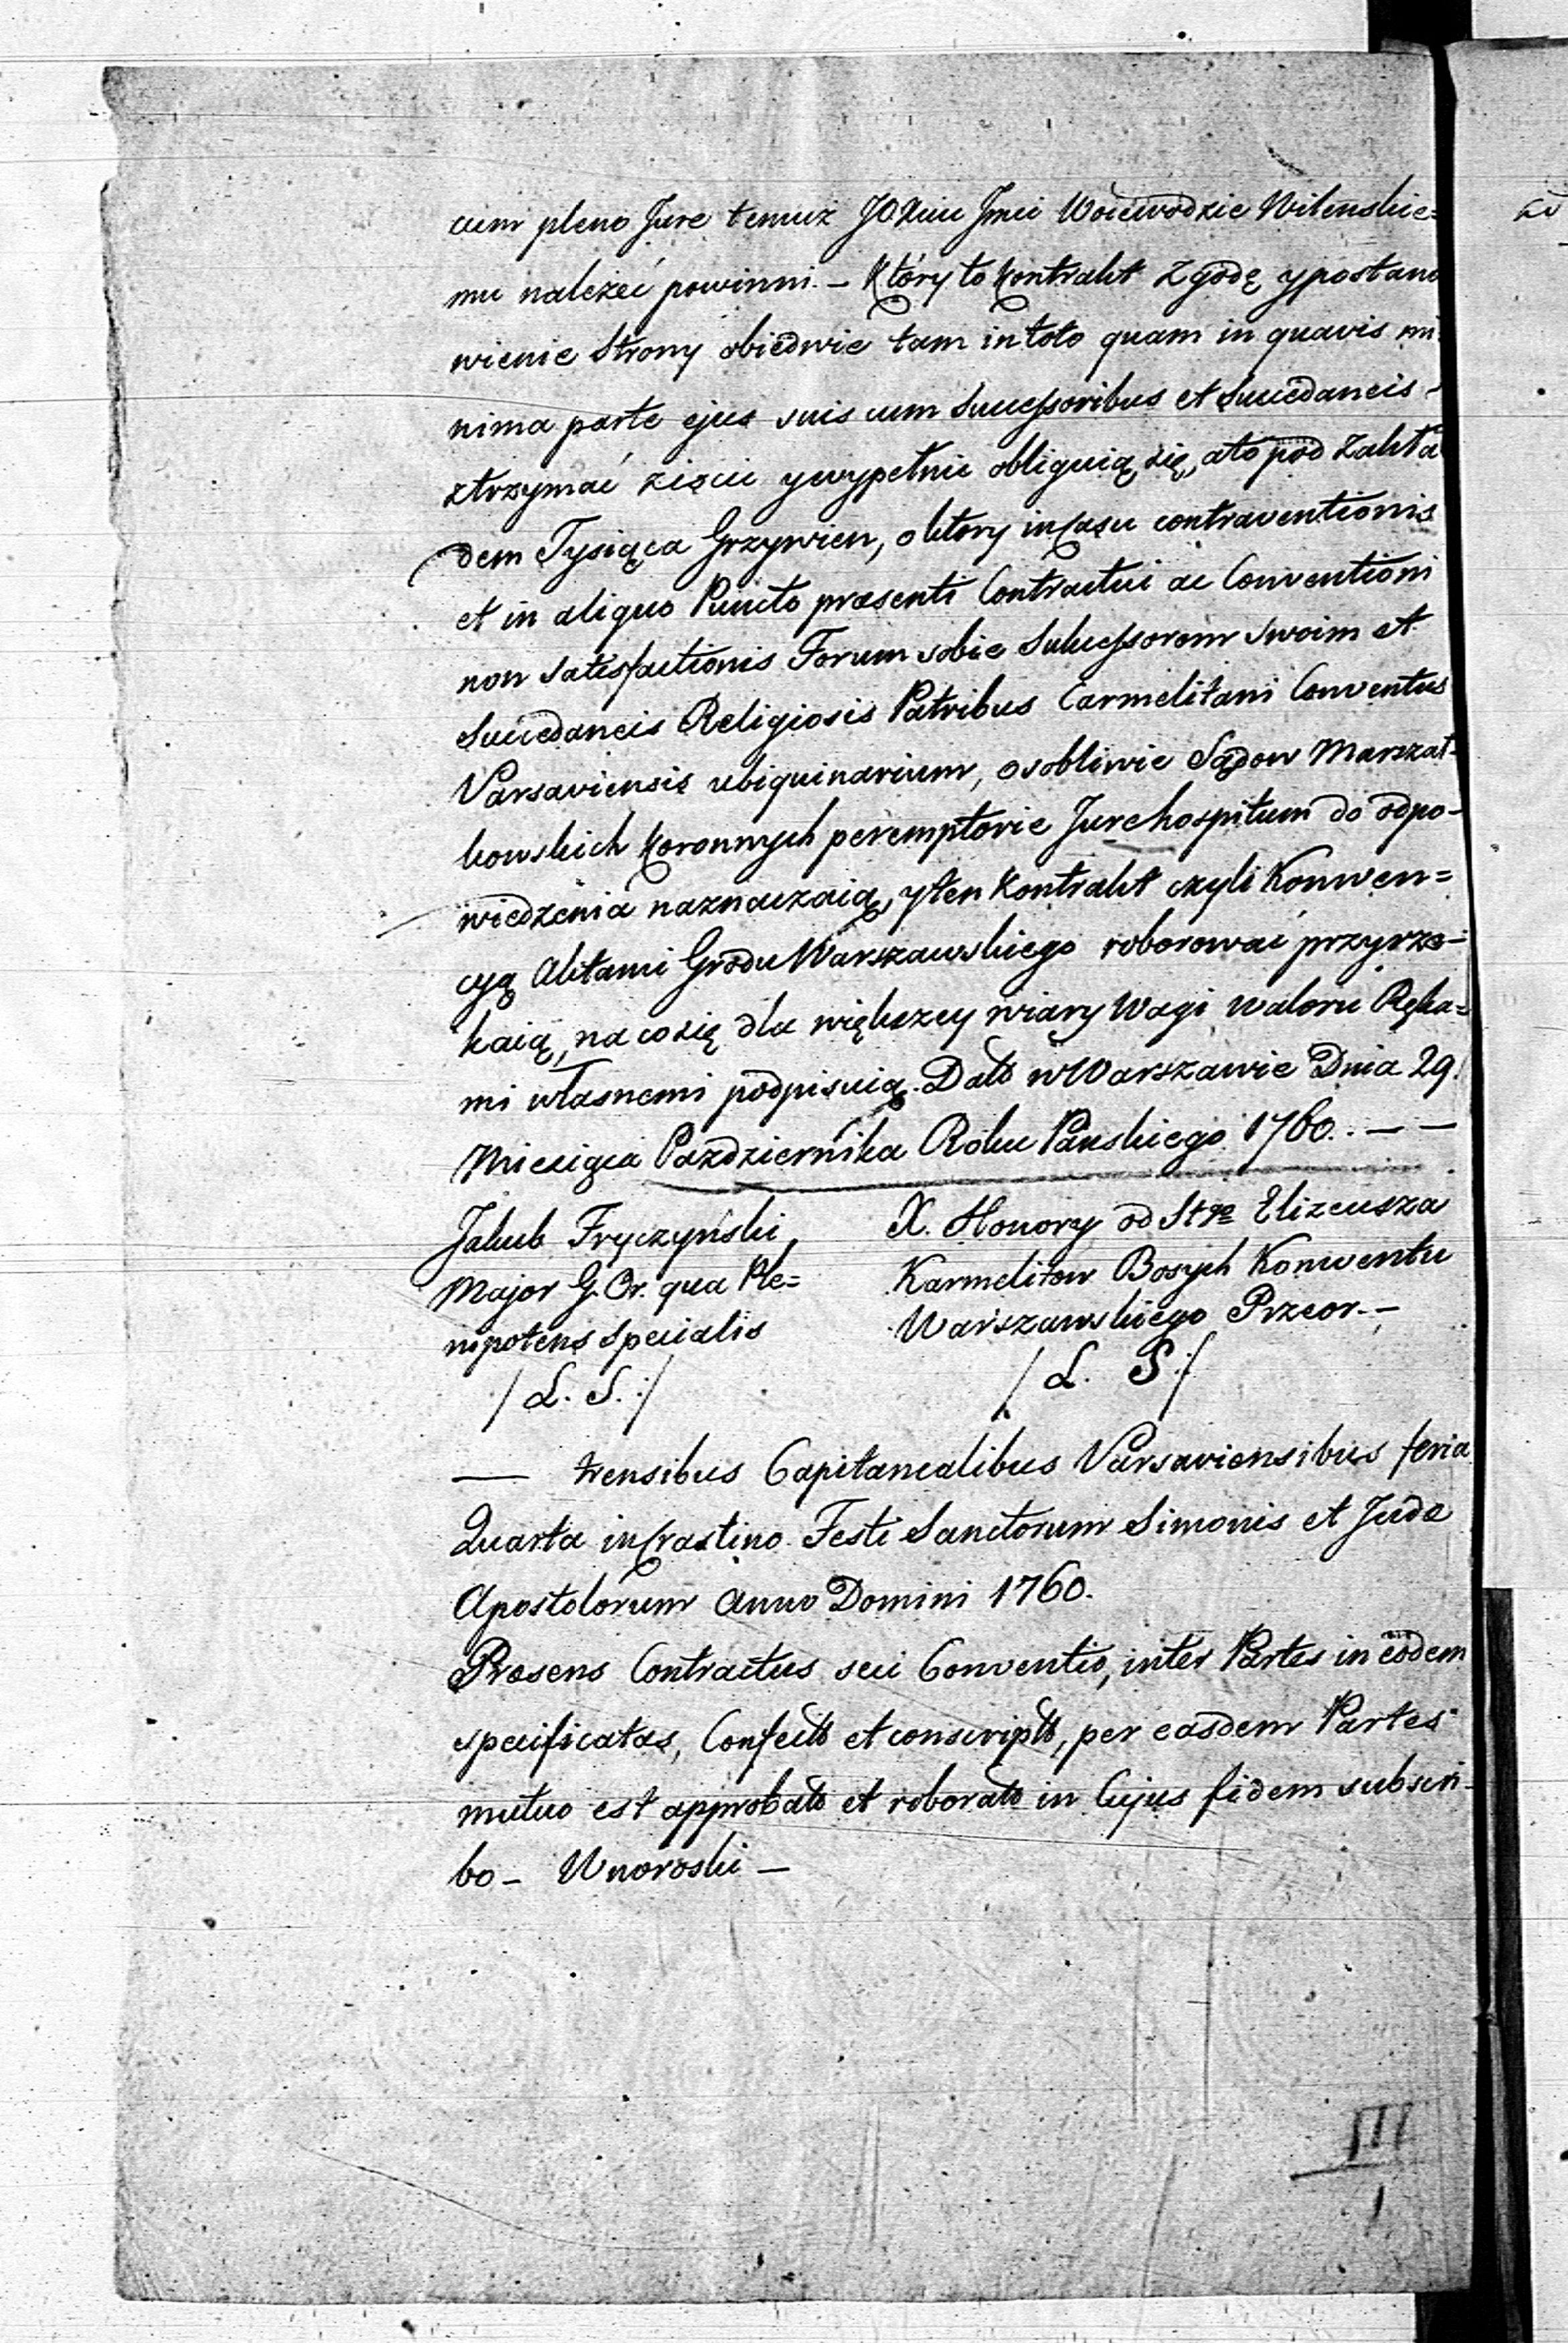 cum pleno Jure temuż JOXciu Jmci Woiewodzie Wilenskie=
mu należeć powinni. – Który to Kontrakt Zgodę y postano
wienie Strony obiedwie tam in toto quam in quavis mi
nima parte ejus suis cum Successoribus et Succedaneis –
ztrzymać ziścic y wypełnic obliguią się, a to pod Zakła
dem Tysiąca Grzywien, o ktory in Casu contraventionis
et in aliquo Puncto præsenti Contractui ac Conventioni
non satisfactionis Forum sobie Sukcessorom swoim et
Succedaneis Religiosis Patribus Carmelitani Conventus
Varsaviensis ubiquinarium, osobliwie Sądow Marszał-
kowskich Koronnych peremptorie Jure hospitum do odpo-
wiedzenia naznaczaią, y ten Kontrakt czyli Konwen=
cyą Aktami Grodu Warszawskiego roborować przyrze-
kaią, na co się dla większey wiary Wagi waloru Ręka=
mi własnemi podpisuią. Datt w Warszawie Dnia 29.
Miesiąca Pazdziernika Roku Pańskiego 1760. . – –
Jakub Fryczyński
Major G. Or. qua Ple=
nipotens specialis
/ L. S. :/
X. Honory od Stgo Elizeusza
Karmelitow Bosych Konwentu
Warszawskiego Przeor. –
/ L. S :/
— trensibus Capitanealibus Varsaviensibus feria
Quarta in Crastino Festi Sanctorum Simonis et Judæ
Apostolorum Anno Domini 1760.
Præsens Contractus seu Conventio, inter Partes in eodem
specificatas, Confectt et conscriptt, per easdem Partes
mutuo est approbatt et roboratt in Cujus fidem subscri-
bo – Wnoroski –
III
1